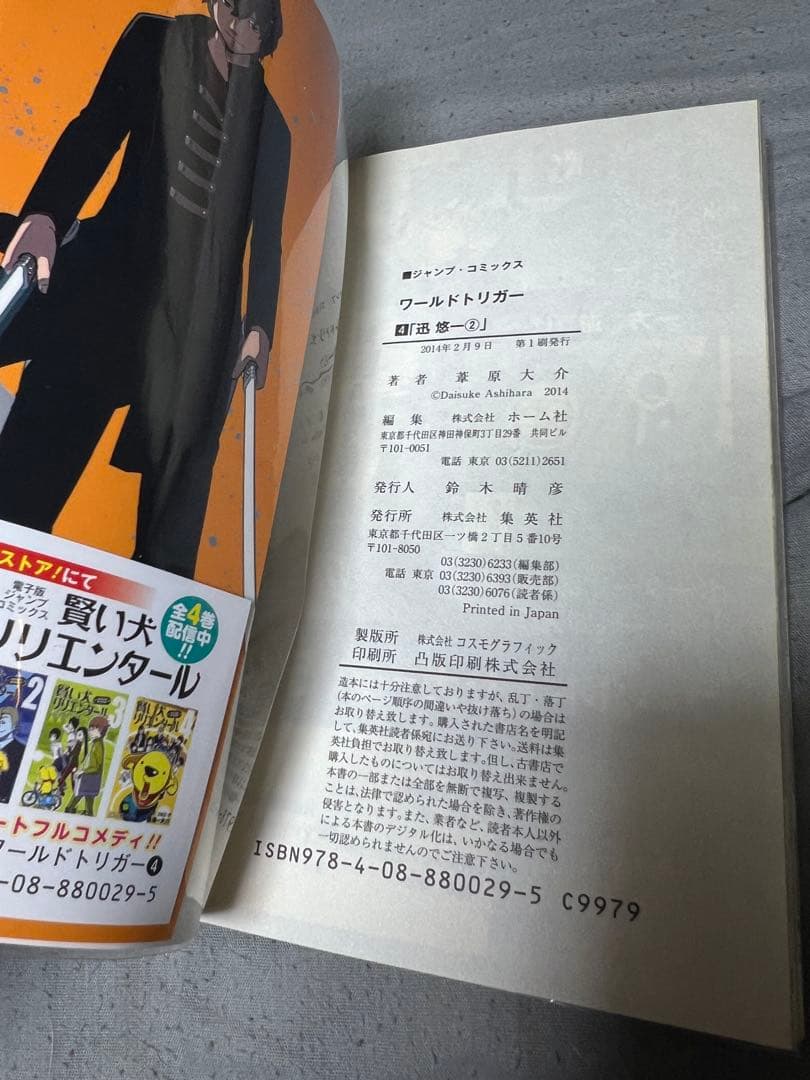 ■ジャンプ・コミックス
ワールドトリガー
4「迅 悠一②」
2014年2月9日 第1刷発行
著者 葦原大介
©Daisuke Ashihara 2014
編集 株式会社 ホーム社
東京都千代田区神田神保町3丁目29番 共同ビル
〒101-0051
電話 東京 03(5211)2651
発行人 鈴木晴彦
発行所 株式会社 集英社
東京都千代田区一ツ橋2丁目5番10号
〒101-8050
03(3230)6233(編集部)
電話 東京 03(3230)6393(販売部)
03(3230)6076(読者係)
Printed in Japan
製版所 株式会社 コスモグラフィック
印刷所 凸版印刷株式会社
造本には十分注意しておりますが、乱丁・落丁
(本のページ順序の間違いや抜け落ち)の場合は
お取り替え致します。購入された書店名を明記
して、集英社読者係宛にお送り下さい。送料は集
英社負担でお取り替え致します。但し、古書店で
購入したものについてはお取り替え出来ません。
本書の一部または全部を無断で複写、複製する
ことは、法律で認められた場合を除き、著作権の
侵害となります。また、業者など、読者本人以外
による本書のデジタル化は、いかなる場合でも
一切認められませんのでご注意下さい。
ISBN978-4-08-880029-5 C9979
ストア!にて
電子版
ジャンプ
コミックス
賢い犬
リリエンタール
全4巻
配信中
!!
2
賢い犬
リリエンタール
3
賢い犬
4
ートフルコメディ!!
ワールドトリガー❹
-08-880029-5